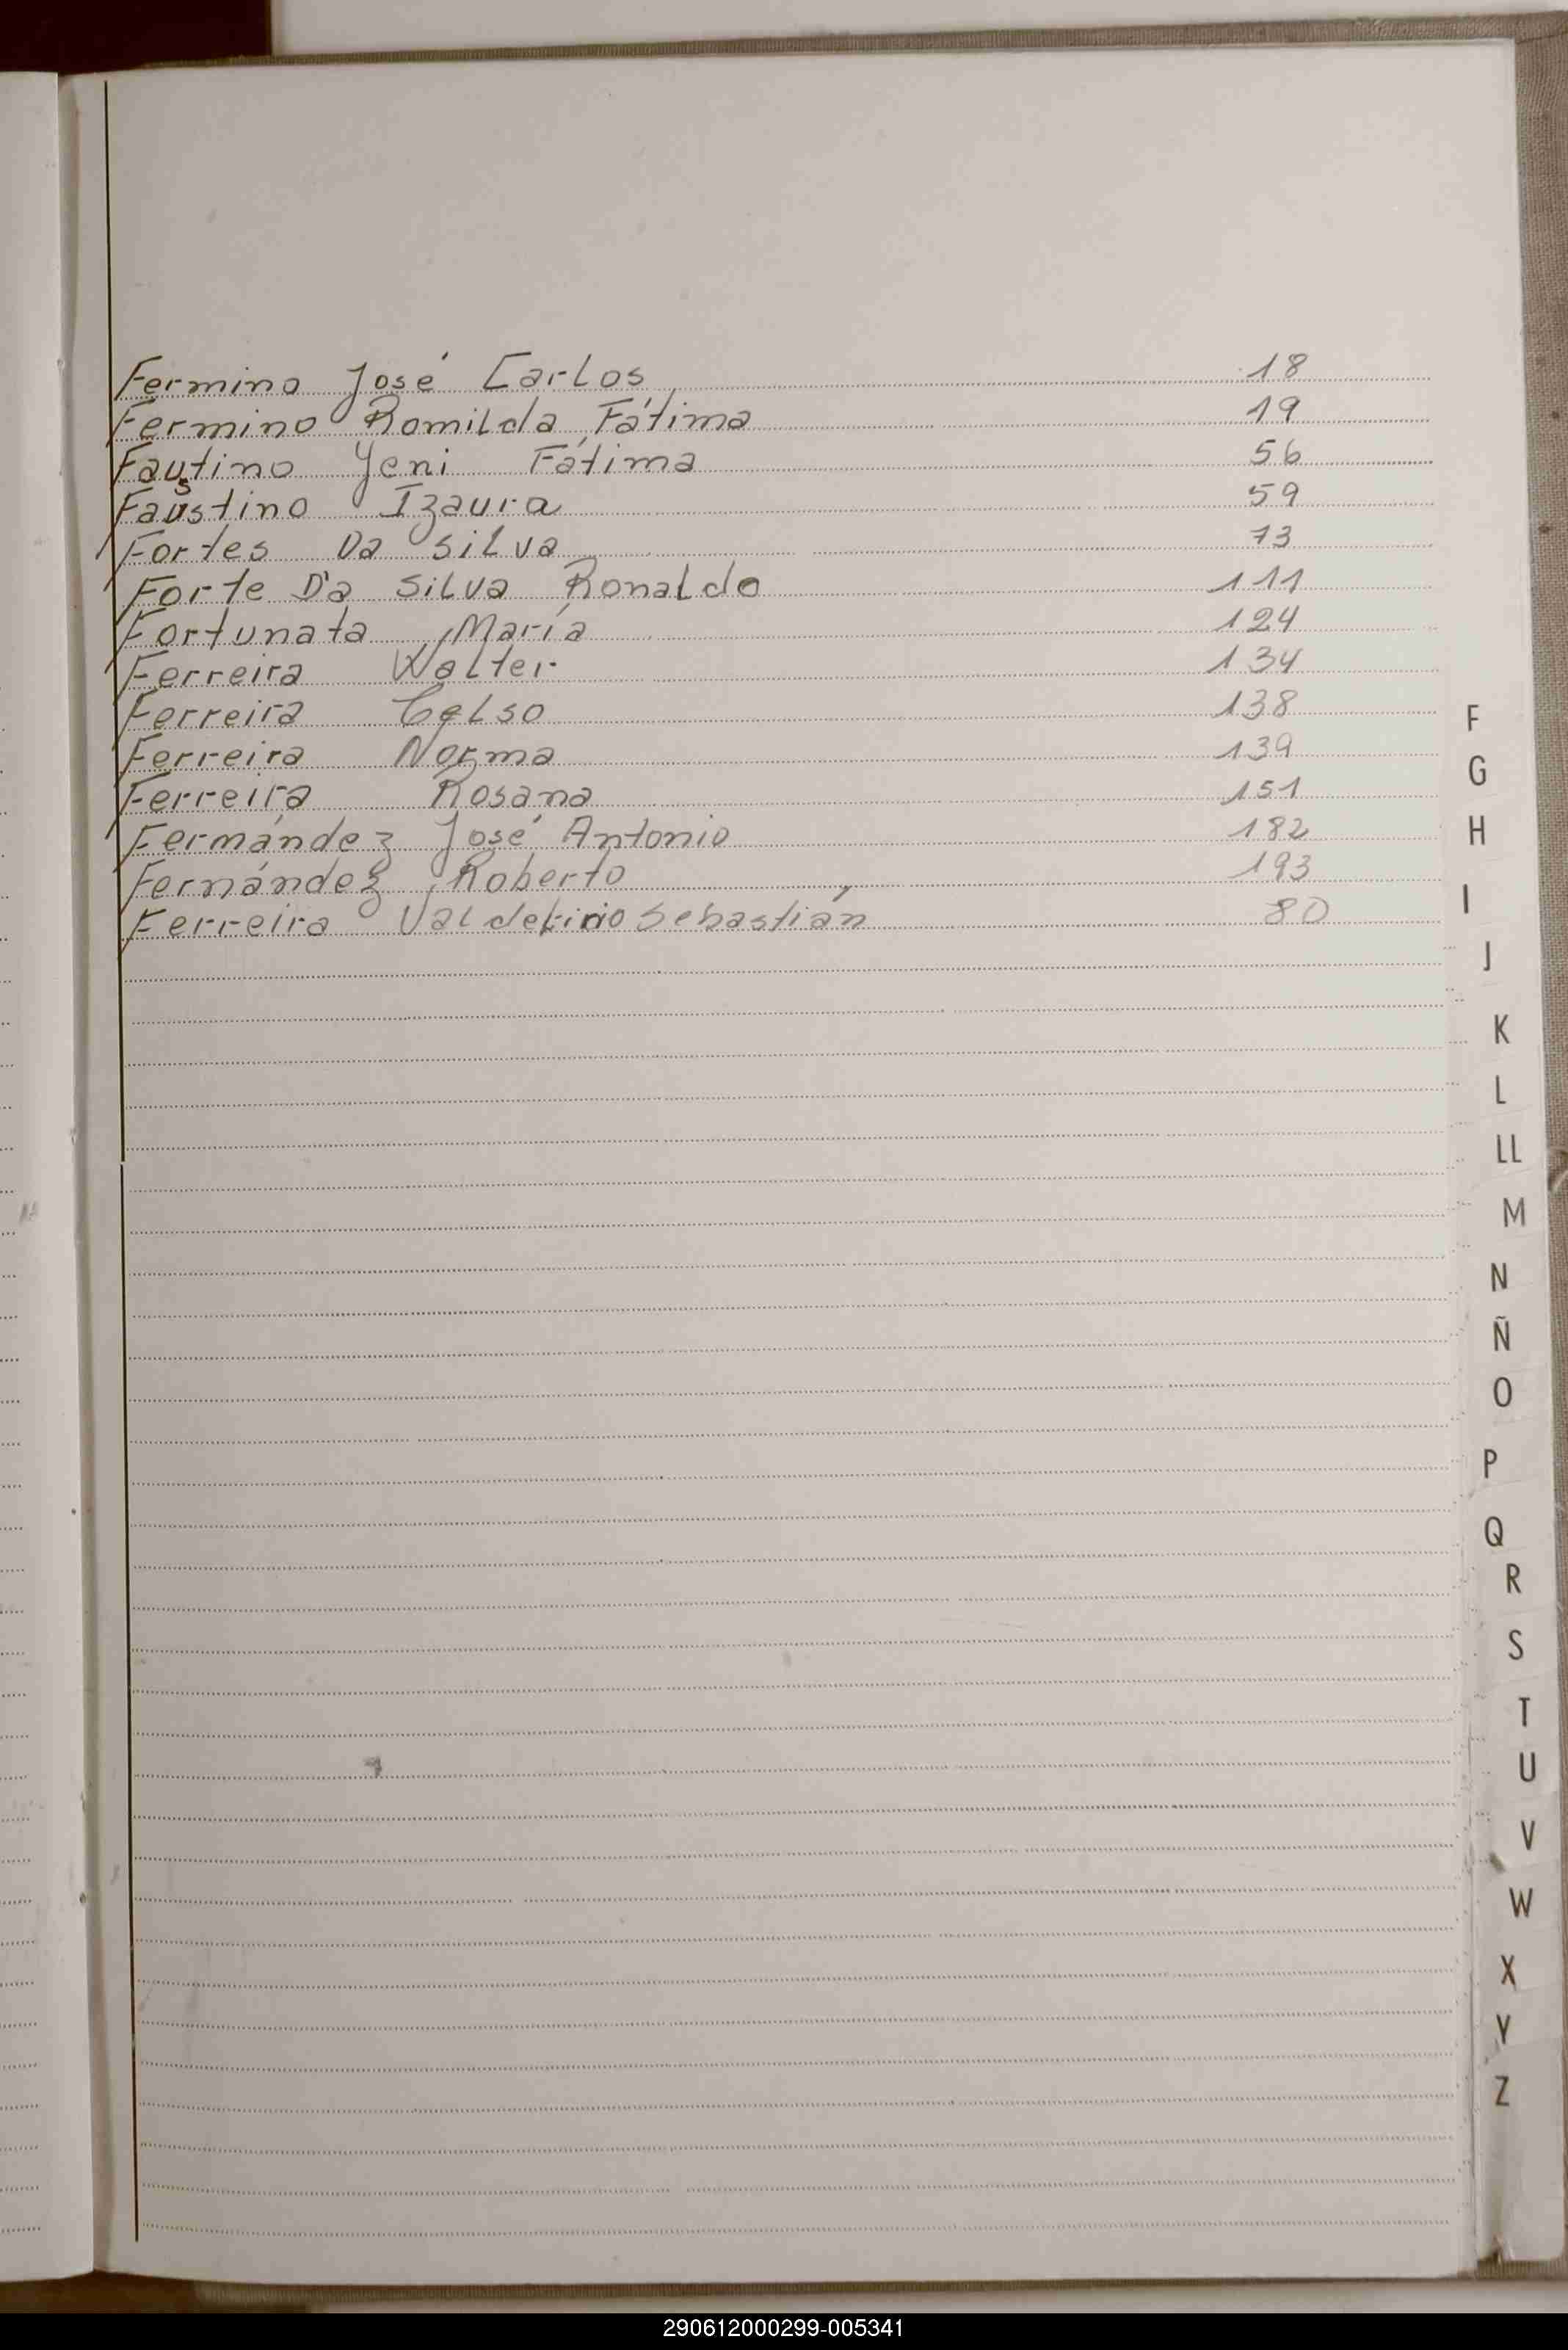 Fermino José Carlos 18
Fermino Romilda Fátima 19
Faustino Yeni Fátima 56
Faustino Izaura 59
Fortes Da Silva 73
Forte Da Silva Ronaldo 111
Fortunata María 124
Ferreira Walter 134
Ferreira Celso 138
Ferreira Norma 139
Ferreira Rosana 151
Fermández José Antonio 182
Fernández Roberto 193
Ferreira Sebastián 80
F
G
H
I
J
K
L
LL
M
N
Ñ
O
P
Q
R
S
T
U
V
W
X
Y
Z
290612000299-005341